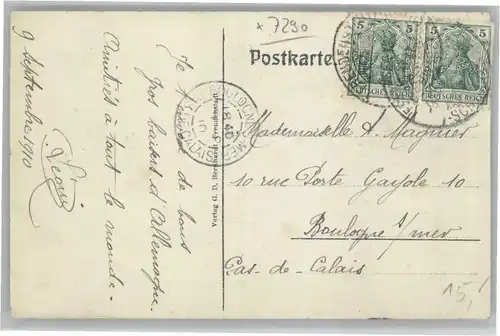 × 7290
Postkarte
5 5
DEUTSCHES REICH DEUTSCHES REICH
Mademoiselle A. Magnier
10 rue Porte Gayole 10
Boulogne s/mer
Pas-de-Calais
15,
Je t' de bons
gros baisers d'Allemagne.
Amitiés à tout le monde.
9 Septembre 1910
BOULOGNE
8 40
10
PAS DE CALAIS
Verlag